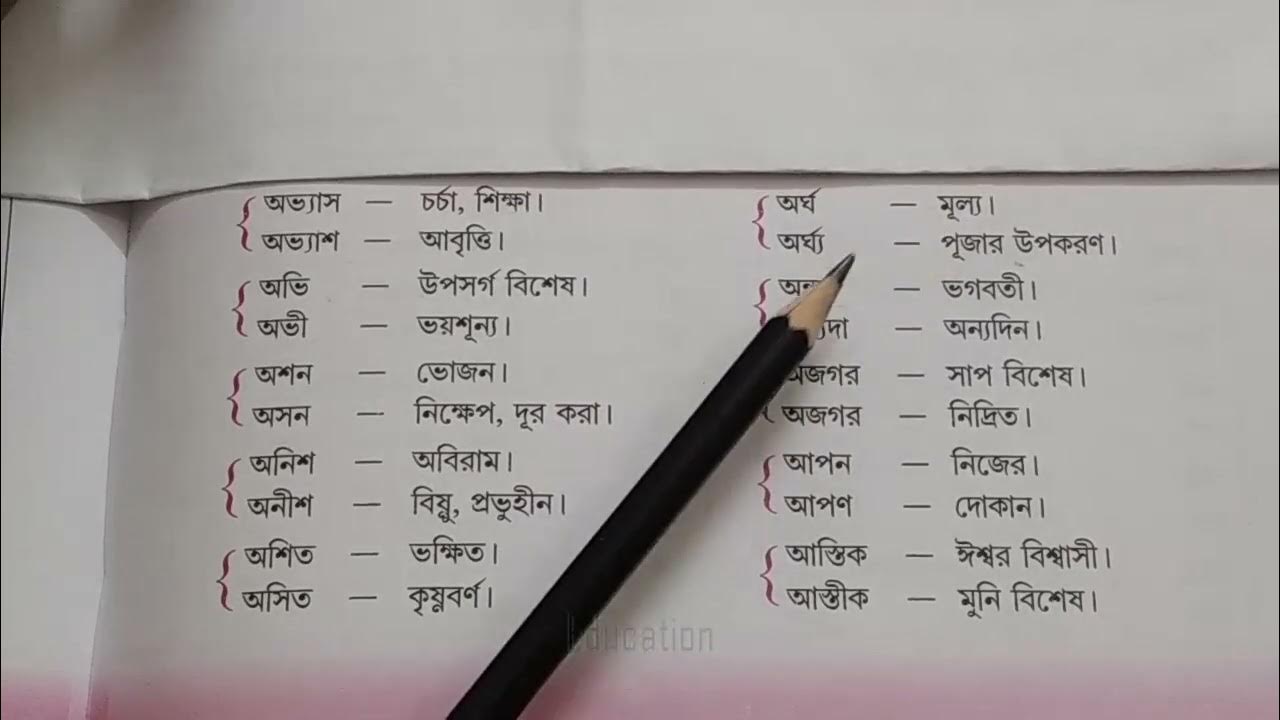 অভ্যাস — চর্চা, শিক্ষা।
অভ্যাশ — আবৃত্তি।
অভি — উপসর্গ বিশেষ।
অভী — ভয়শূন্য।
অশন — ভোজন।
অসন — নিক্ষেপ, দূর করা।
অনিশ — অবিরাম।
অনীশ — বিষ্ণু, প্রভুহীন।
অশিত — ভক্ষিত।
অসিত — কৃষ্ণবর্ণ।
অর্ঘ — মূল্য।
অর্ঘ্য — পূজার উপকরণ।
— ভগবতী।
— অন্যদিন।
অজগর — সাপ বিশেষ।
অজগর — নিদ্রিত।
আপন — নিজের।
আপণ — দোকান।
আস্তিক — ঈশ্বর বিশ্বাসী।
আস্তীক — মুনি বিশেষ।
Education